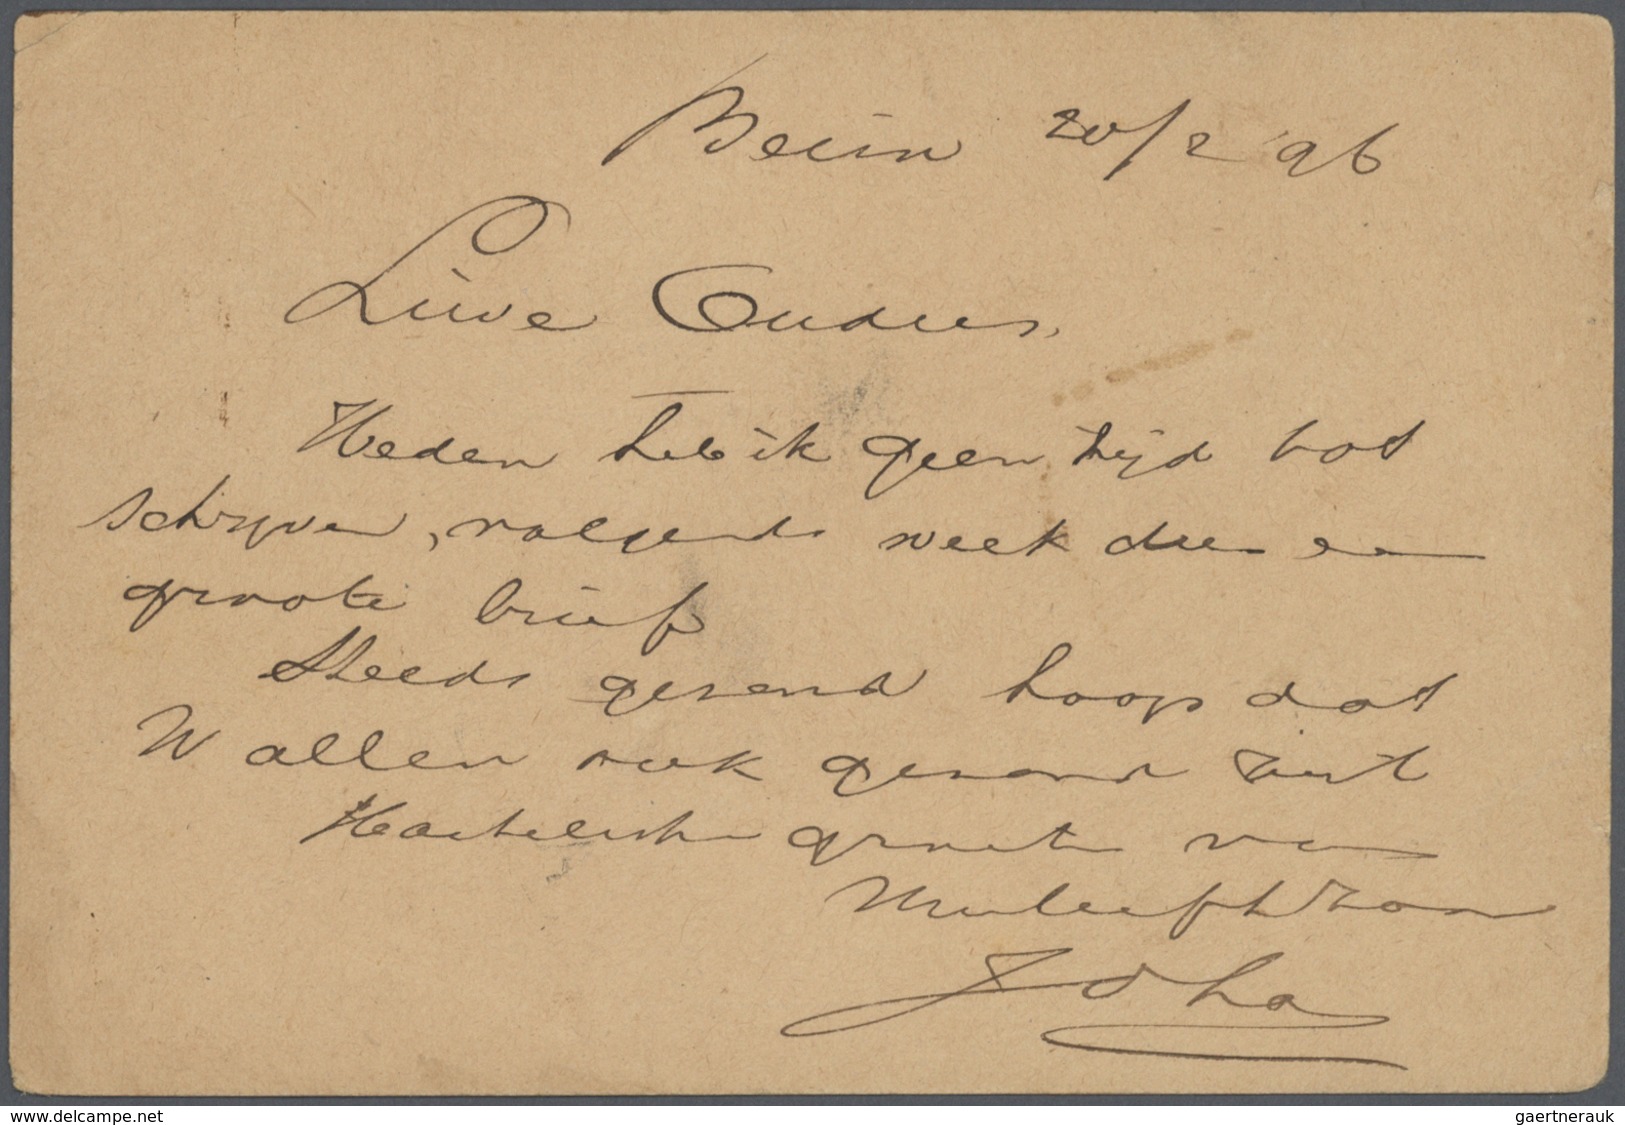 20/2 96
Lieve Ouders.
Heden heb ik geen tijd tot
schryven, volgende week dus een
groote brief
Steeds gezond hoop dat
U allen ook gezond zijt
Hartelijke groete van
Uw liefh zoon
www.delcampe.net
gaertnerauk